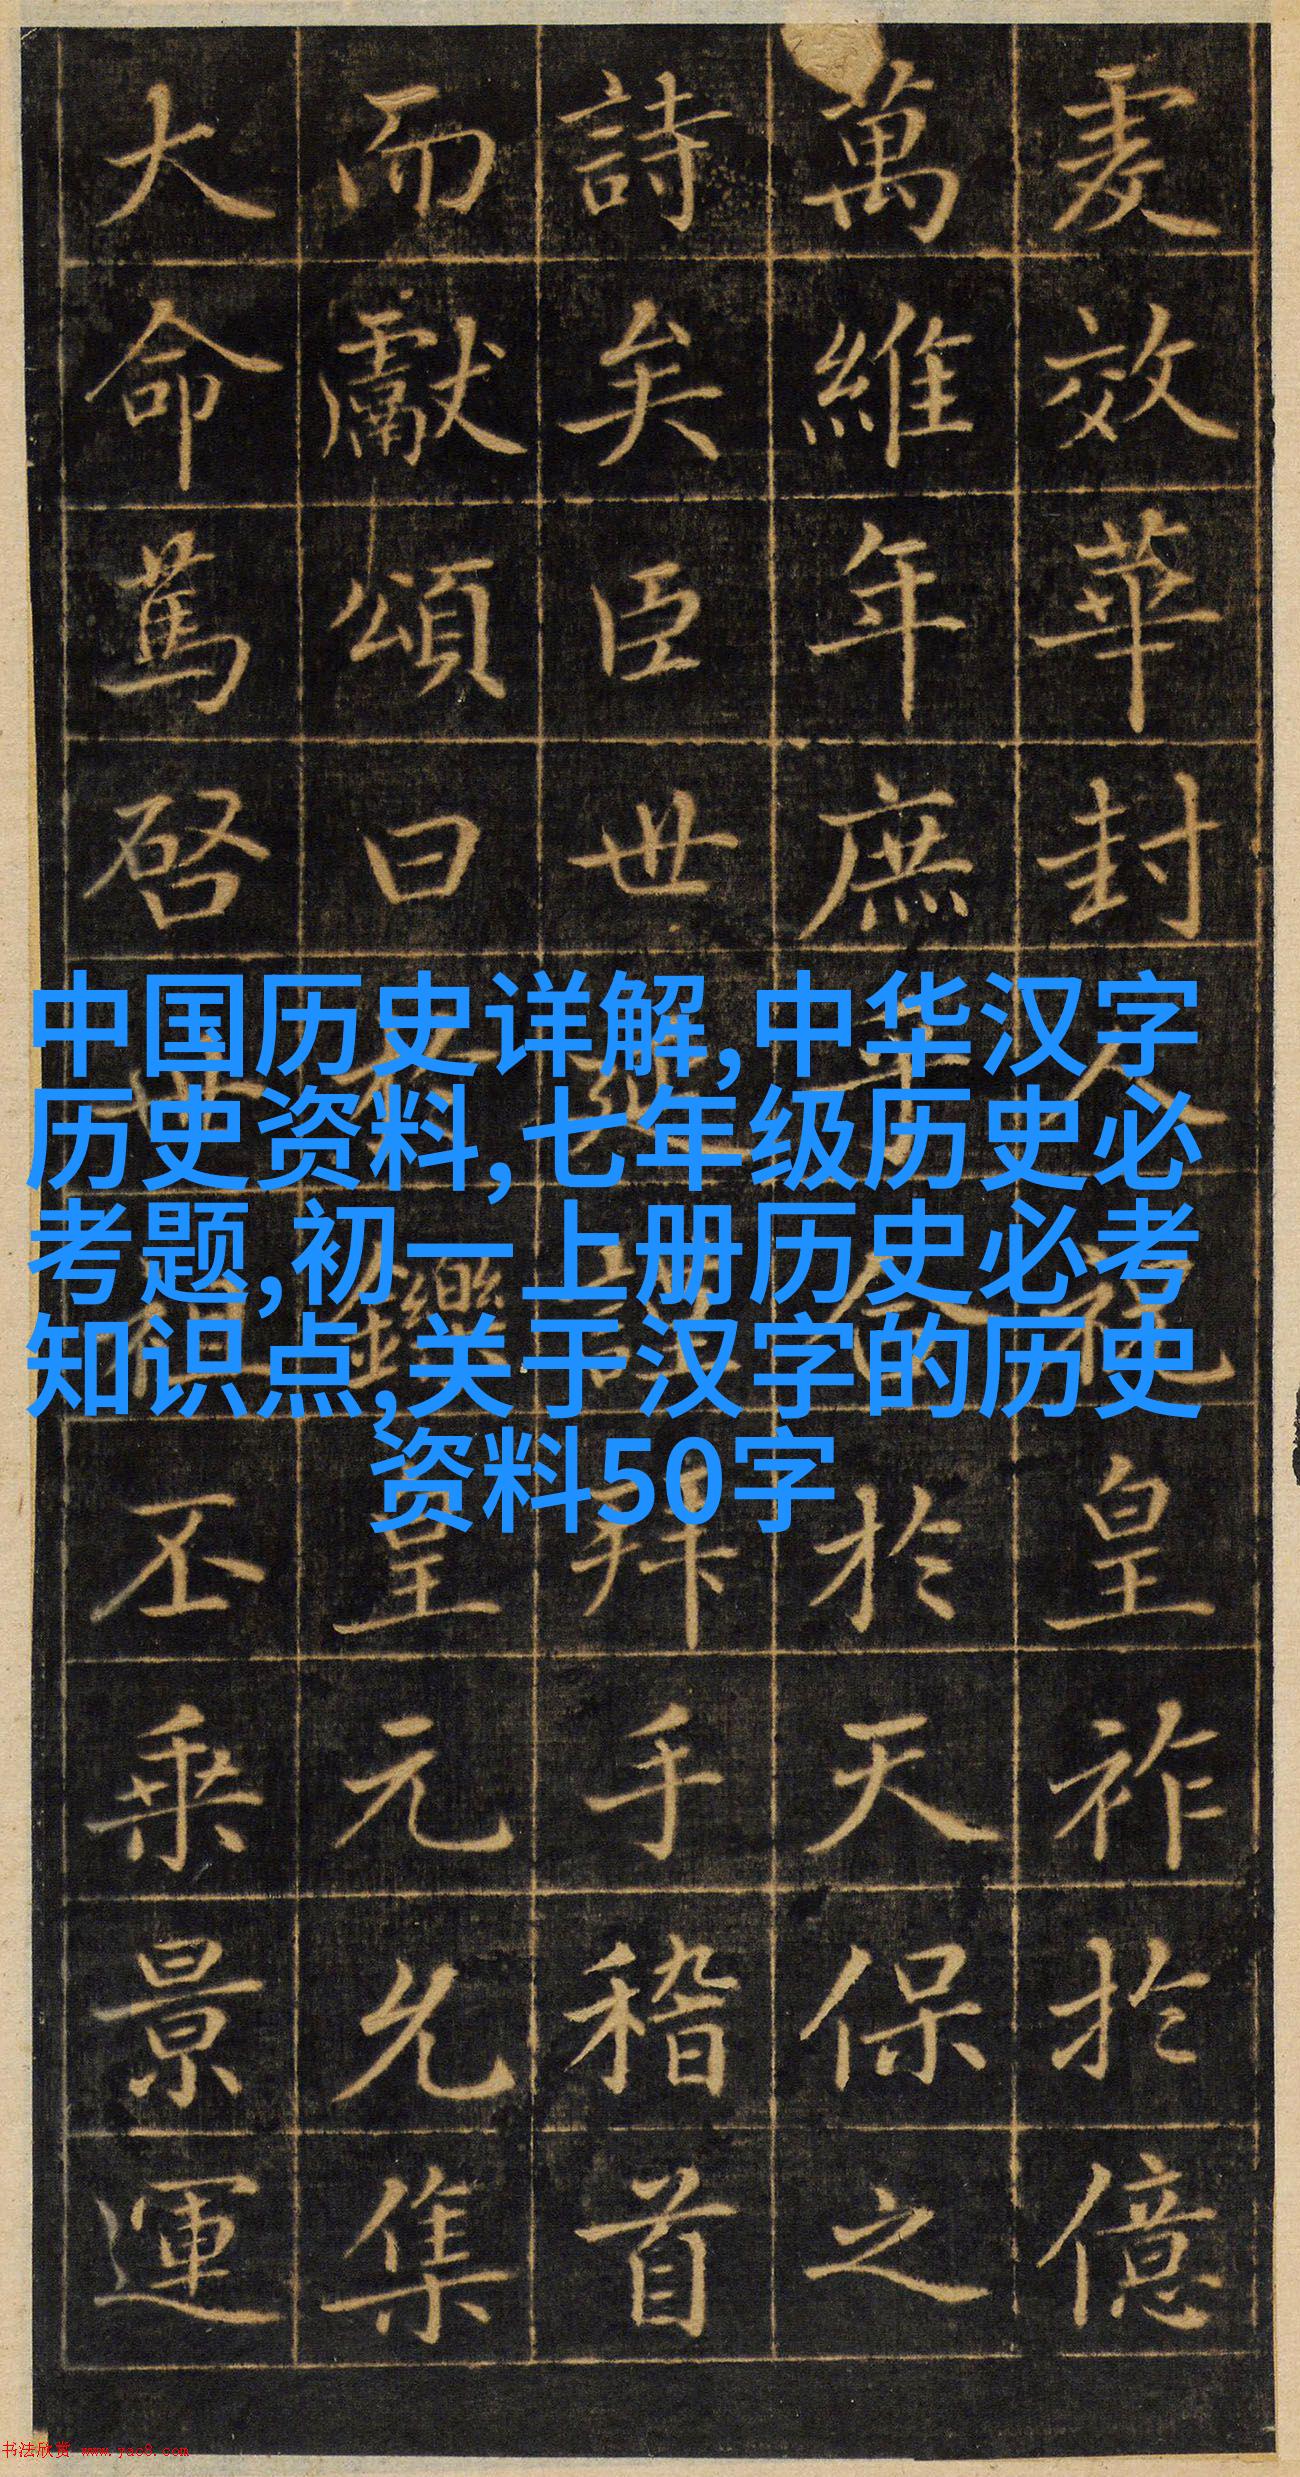 爰效華封人祝皇祚於億
萬維年庶乎合於天保之
詩矣臣世延謹拜手稽首
而獻頌曰於鑠皇元允集
大命篤啓世祖丕乘景運
中国历史详解,中华汉字
历史资料,七年级历史必
考题,初一上册历史必考
知识点,关于汉字的历史
资料50字
书法欣赏 www.yac8.com